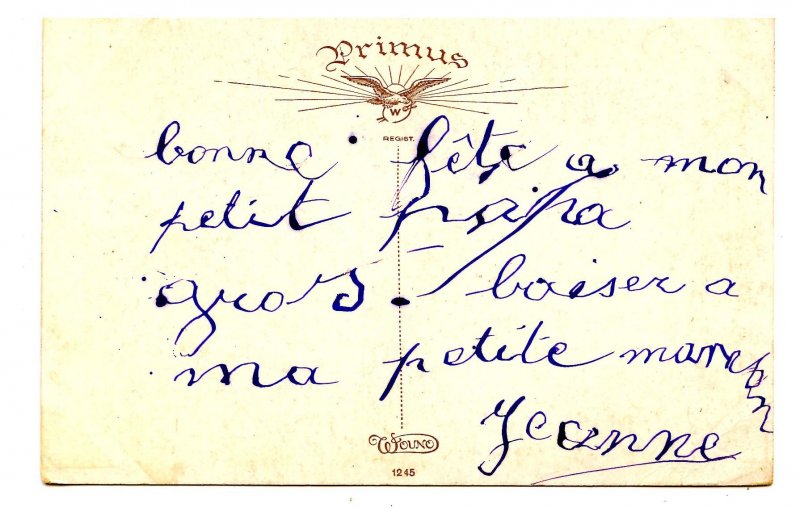 Primus
W
REGIST.
bonne fête a mon
petit papa
gros. baiser a
ma petite maman
Jeanne
1245